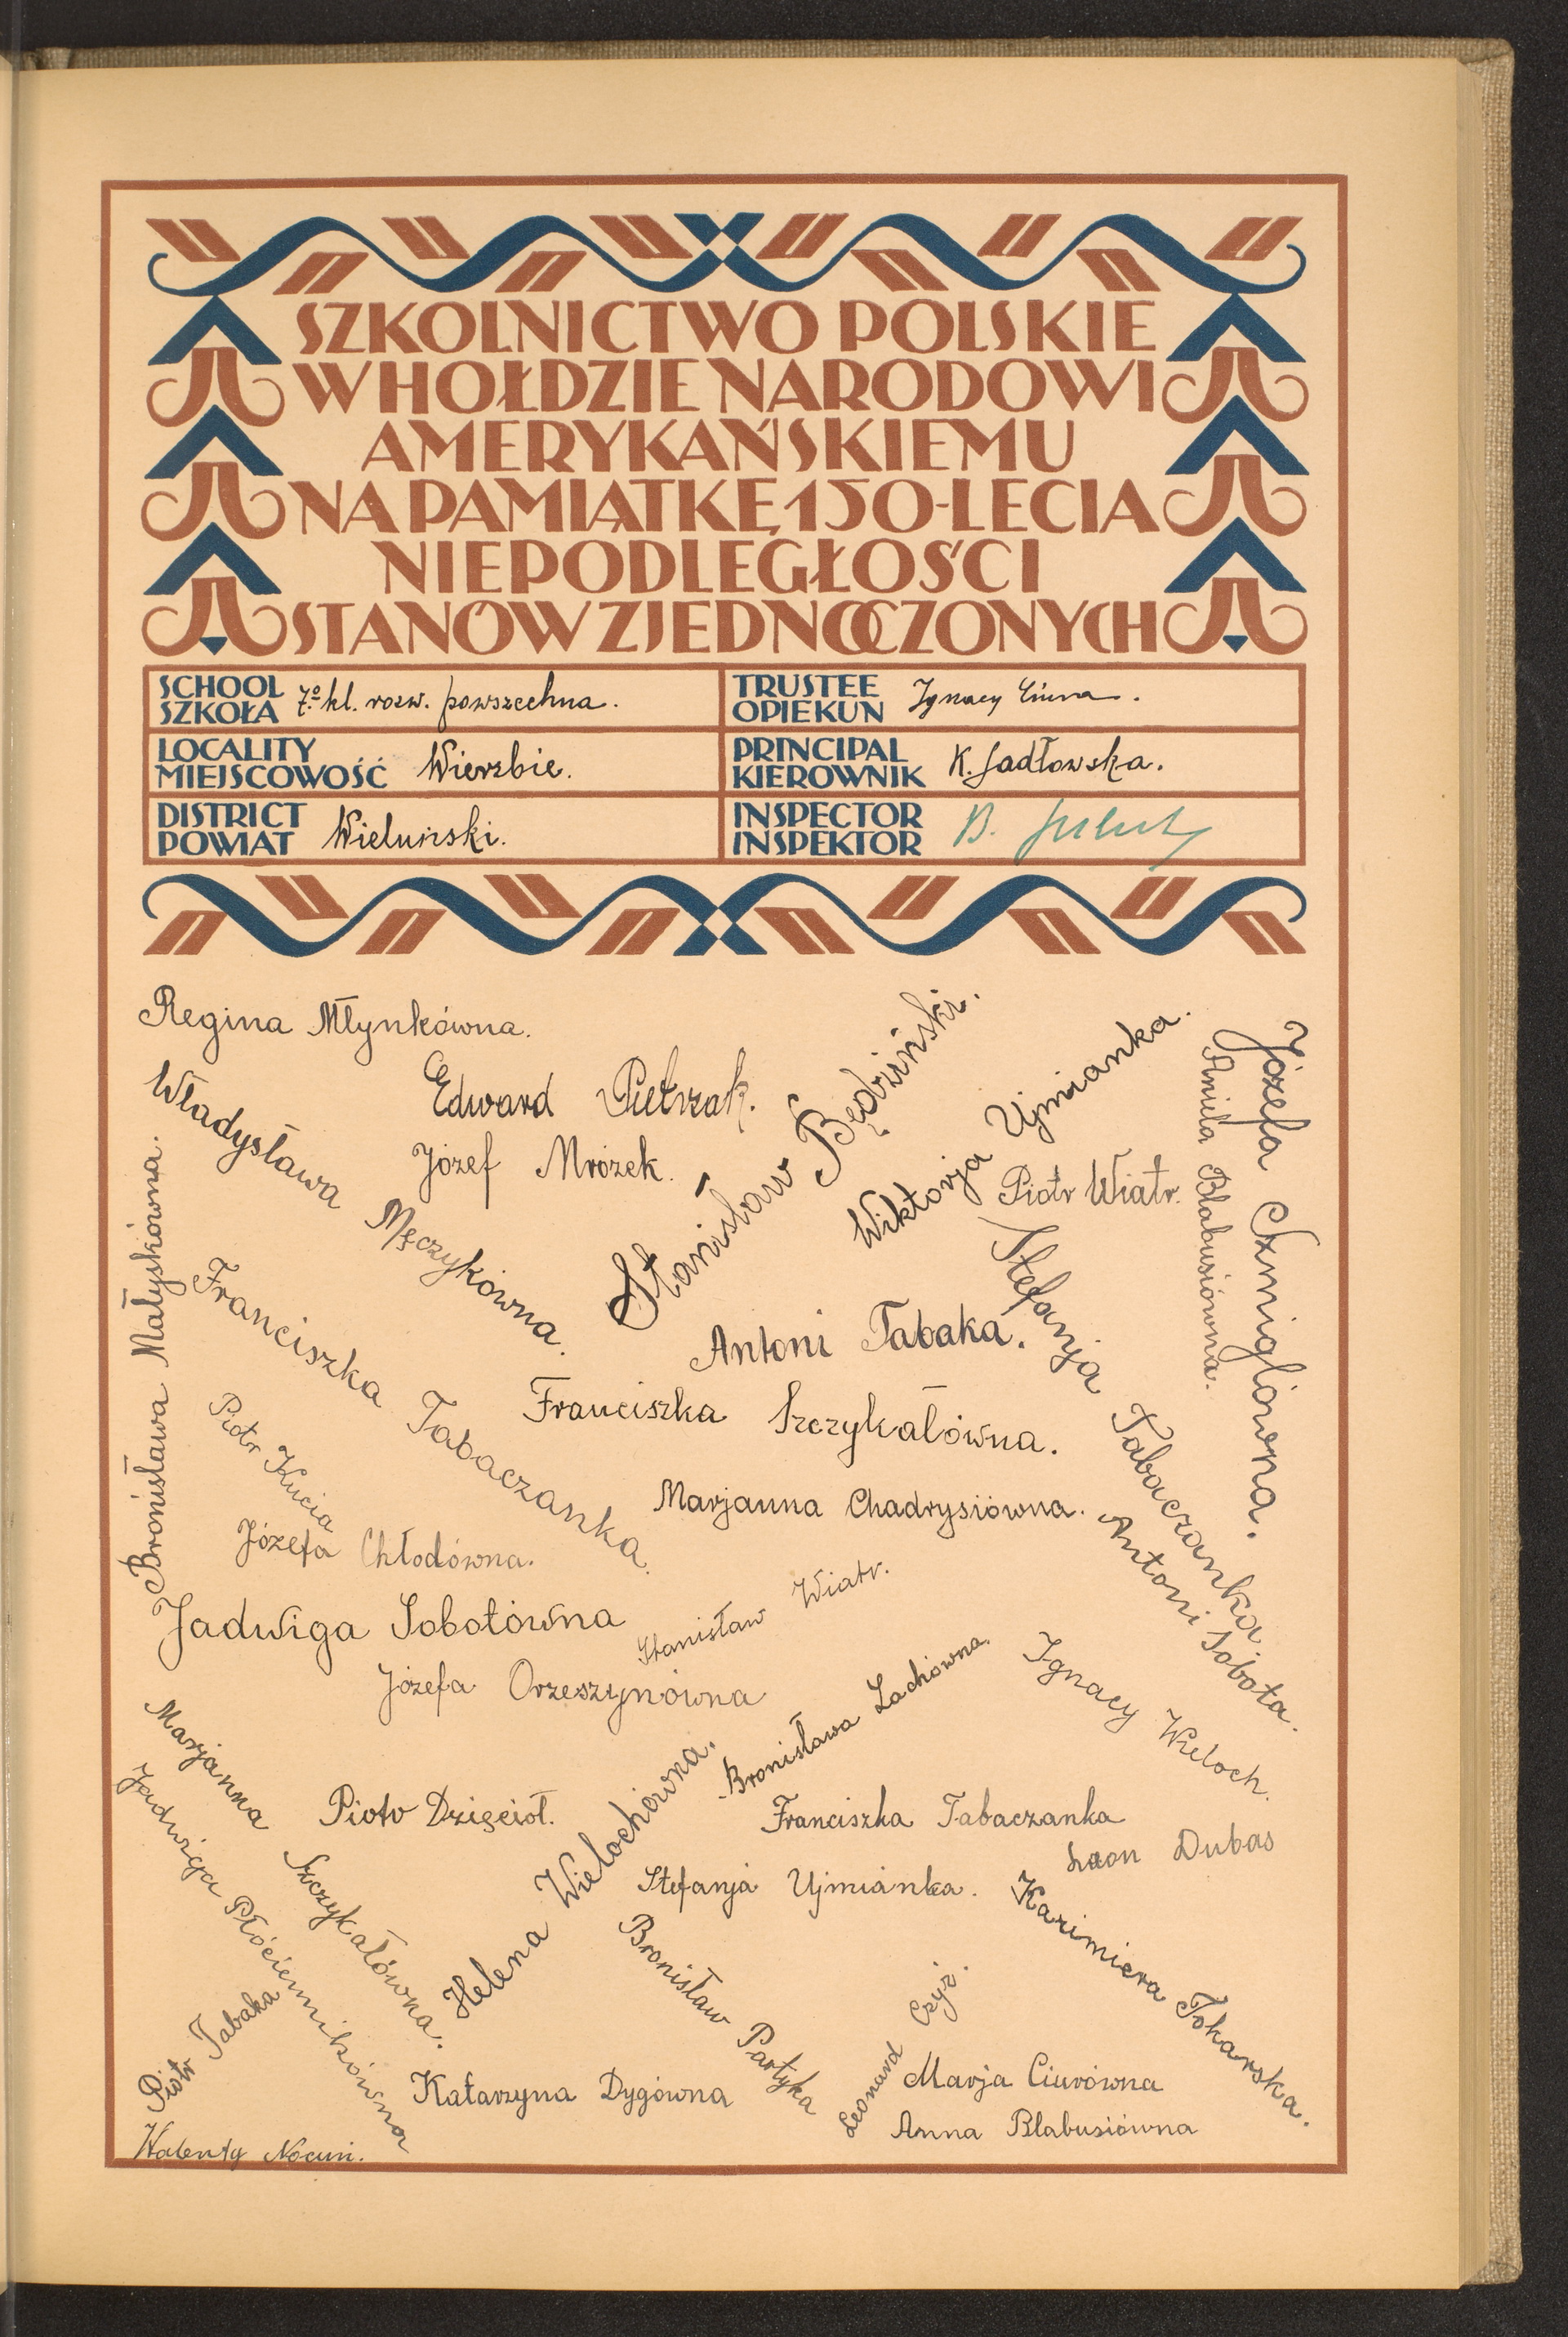 SZKOLNICTWO POLSKIE
W HOŁDZIE NARODOWI
AMERYKAŃSKIEMU
NA PAMIĄTKĘ 150-LECIA
NIEPODLEGŁOŚCI
STANÓW ZJEDNOCZONYCH
SCHOOL
SZKOŁA 7.º kl. rozw. powszechna.
TRUSTEE
OPIEKUN Ignacy
LOCALITY
MIEJSCOWOŚĆ Wierzbie.
PRINCIPAL
KIEROWNIK K. Sadłowska.
DISTRICT
POWIAT Wieluński.
INSPECTOR
INSPEKTOR B.
Regina Młynkówna.
Władysława Męczykówna.
Edward Pietrzak.
Józef Mrozek.
Stanisław Będziński.
Wiktorja Ujmianka.
Piotr Wiatr.
Aniela Blabusiówna.
Józefa Szmiglówna.
Bronisława Małyskówna.
Franciszka Tabaczanka.
Antoni Tabaka.
Stefanja Tabaczanka.
Franciszka Szczykałówna.
Piotr Kucia
Marjanna Chadrysiówna.
Antoni Sobota.
Józefa Chłodówna.
Jadwiga Sobotówna
Stanisław Wiatr.
Józefa Orzeszynówna
Bronisława Zachówna.
Ignacy Wieloch.
Marjanna Szczykałówna.
Jadwiga Płóciennikówna
Piotr Dzięcioł.
Helena Wielochówna.
Franciszka Tabaczanka
Leon Dubas
Stefanja Ujmianka.
Kazimiera Tokarska.
Bronisław Partyka
Leonard Czyż.
Piotr Tabaka
Katarzyna Dygówna
Marja Ciurówna
Anna Blabusiówna
Walenty Nocuń.